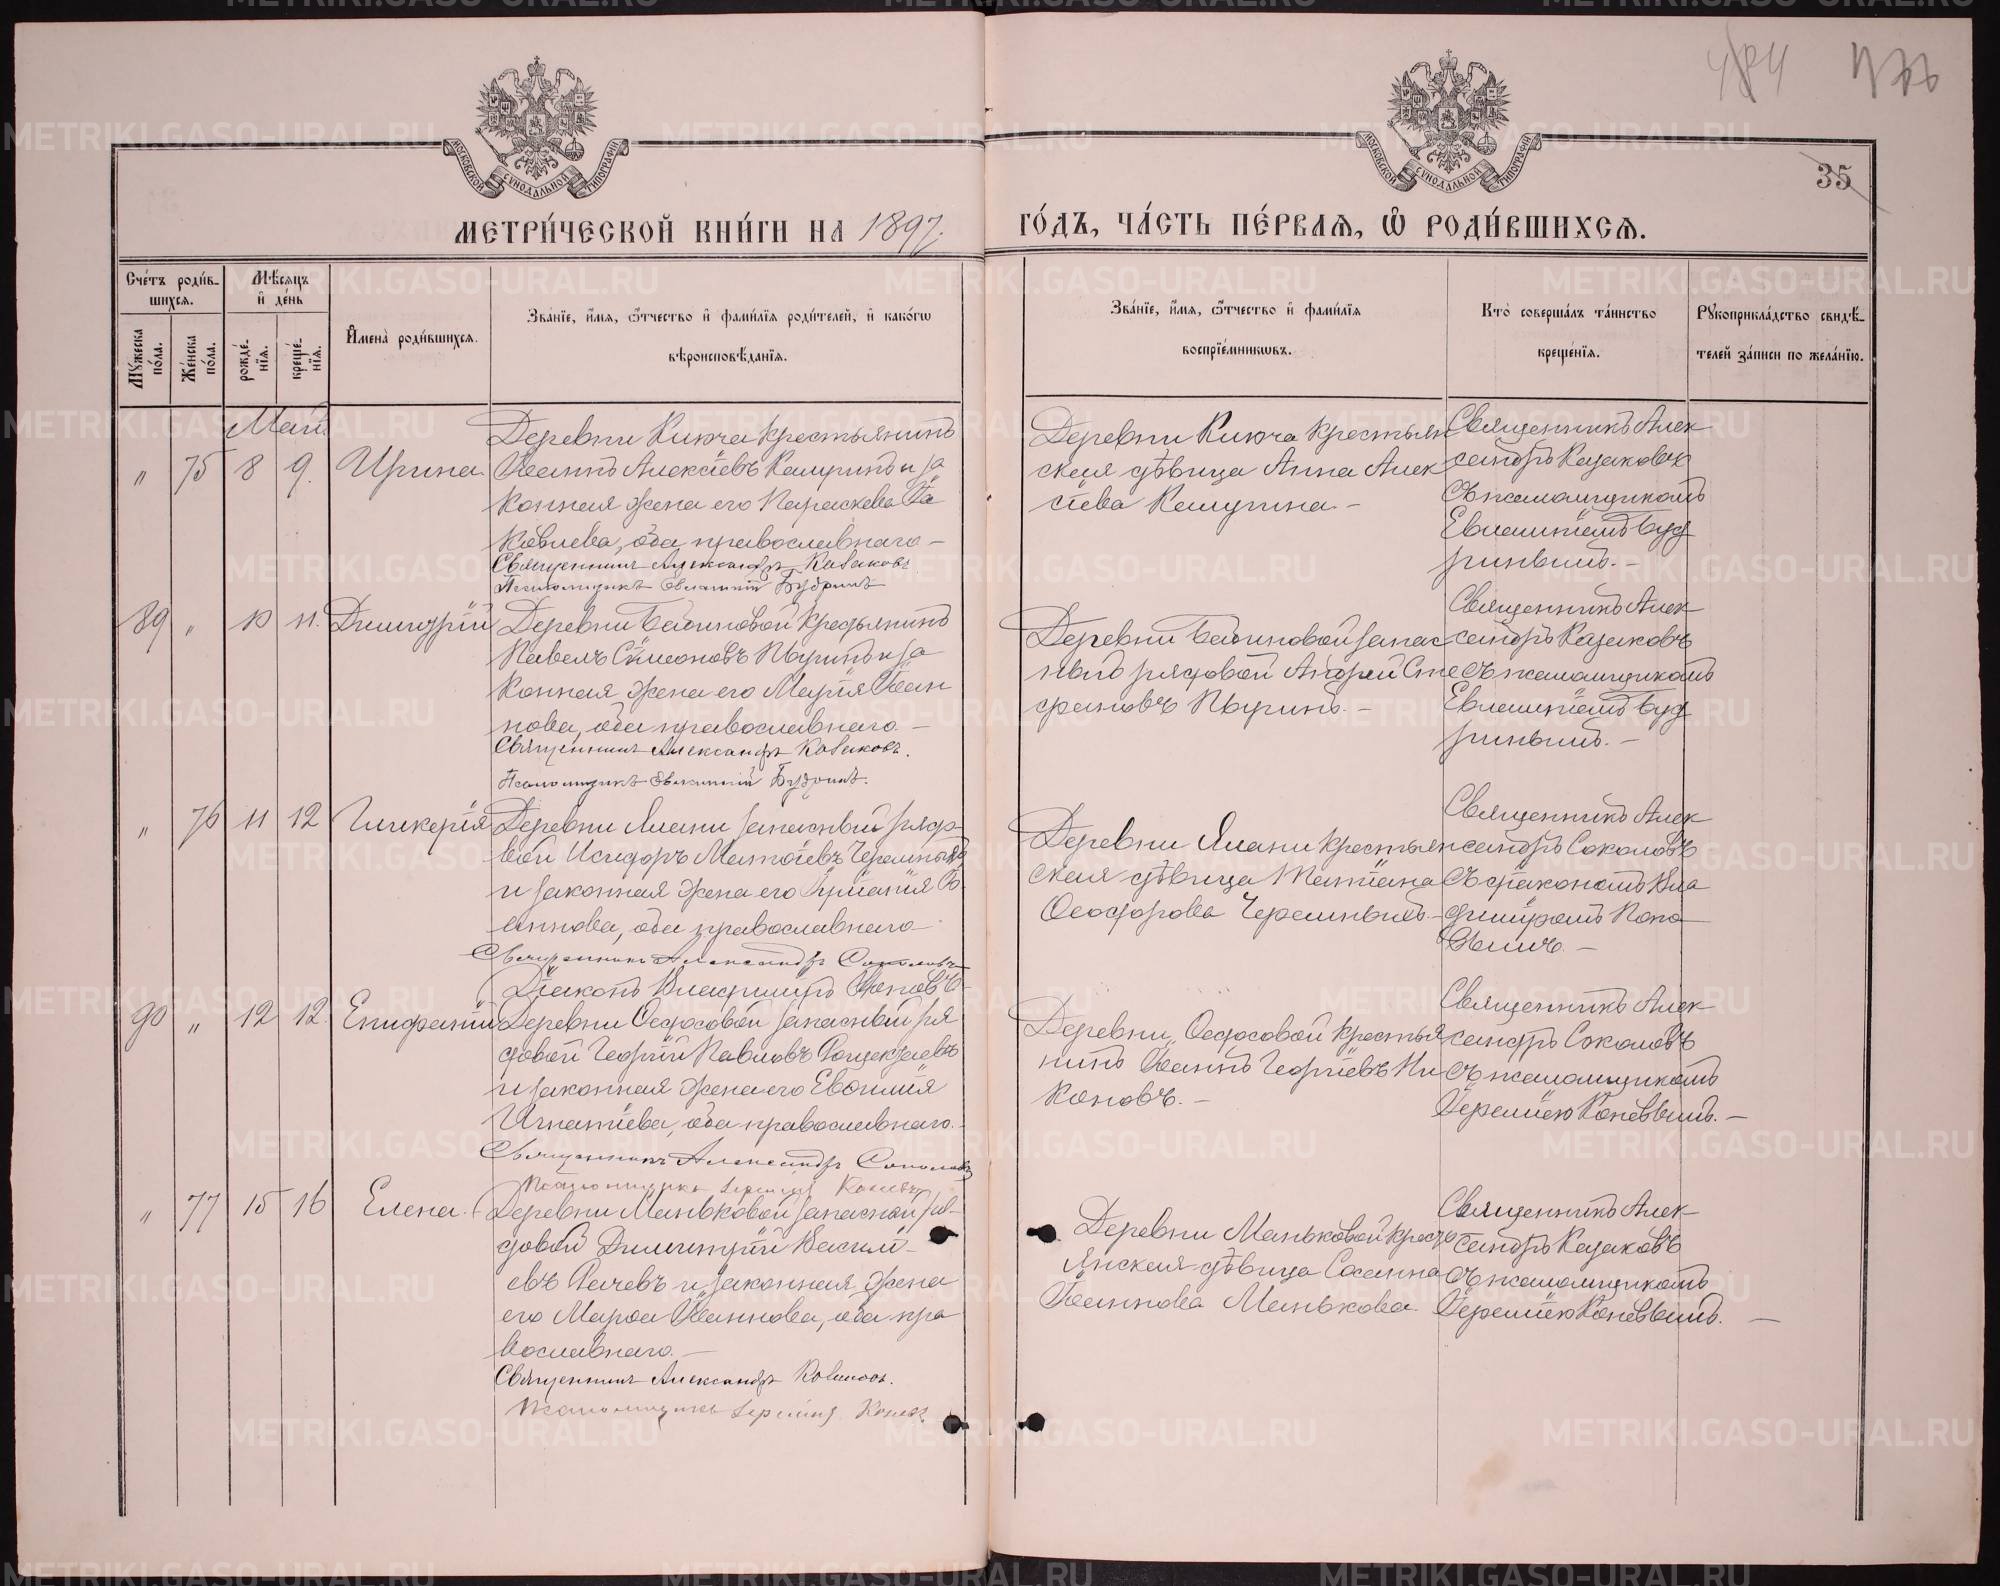 МЕТРИЧЕСКОЙ КНИГИ НА 1897.
ГОДЪ, ЧАСТЬ ПЕРВАЯ, Ѡ РОДИВШИХСЯ.
МОСКОВСКОЙ СУНОДАЛЬНОЙ ТИПОГРАФІИ
МОСКОВСКОЙ СУНОДАЛЬНОЙ ТИПОГРАФІИ
35
Счетъ родившихся.
Мужеска пола.
Женска пола.
Мѣсяцъ и день
рожденія.
крещенія.
Имена родившихся.
Званіе, имя, отчество и фамилія родителей, и какогω
вѣроисповѣданія.
Званіе, имя, отчество и фамилія
воспріемниковъ.
Кто совершалъ таинство
крещенія.
Рукоприкладство свидѣ-
телей записи по желанію.
Май
" 75 8 9. Ирина.
Деревни Ключа крестьянинъ
Іоаннъ Алексіевъ и за
конная жена его Параскева Іа
ковлева, оба православнаго –
Священникъ Александръ Казаковъ.
Псаломщикъ Евлампій Будринъ
Деревни Ключа крестьян
ская дѣвица Анна Алек
сіева
Священникъ Алек
сандръ Казаковъ
съ псаломщикомъ
Евлампіемъ Буд
ринымъ. –
89 " 10 11. Димитрій
Деревни крестьянинъ
Павелъ Симеоновъ и за
конная жена его Марія Іоан
нова, оба православнаго. –
Священникъ Александръ Казаковъ.
Псаломщикъ Евлампій Будринъ.
Деревни запас
ный рядовой Андрей Сте
фановъ
Священникъ Алек
сандръ Казаковъ
съ псаломщикомъ
Евлампіемъ Буд
ринымъ. –
" 76 11 12 Гликерія
Деревни Яланы запасный рядо
вой Исидоръ Матѳіевъ Черемныхъ
и законная жена его Іо
аннова, оба православнаго –
Священникъ Александръ Соколовъ
Діаконъ Владиміръ Поповъ
Деревни Яланы крестьян
ская дѣвица Татіана
Ѳеодорова Черемныхъ. –
Священникъ Алек
сандръ Соколовъ
съ діакономъ Вла
диміромъ Попо
вымъ. –
90 " 12 12. Епифаній
Деревни Ѳедосовой запасный ря
довой Георгій Павловъ
и законная жена его Евѳимія
Игнатіева, оба православнаго.
Священникъ Александръ Соколовъ
Псаломщикъ Іеремія Коневъ
Деревни Ѳедосовой крестья
нинъ Іоаннъ Георгіевъ Ни
коновъ. –
Священникъ Алек
сандръ Соколовъ
съ псаломщикомъ
Іереміею Коневымъ. –
" 77 15 16 Елена.
Деревни Маньковой запасной ря-
довой Димитрій Василі-
евъ и законная жена
его Марѳа Іоаннова, оба пра
вославнаго. –
Священникъ Александръ Казаковъ.
Псаломщикъ Іеремія Коневъ
Деревни Маньковой кресть
янская дѣвица Сосанна
Іоаннова Манькова.
Священникъ Алек
сандръ Казаковъ
съ псаломщикомъ
Іереміею Коневымъ. –
METRIKI.GASO-URAL.RU